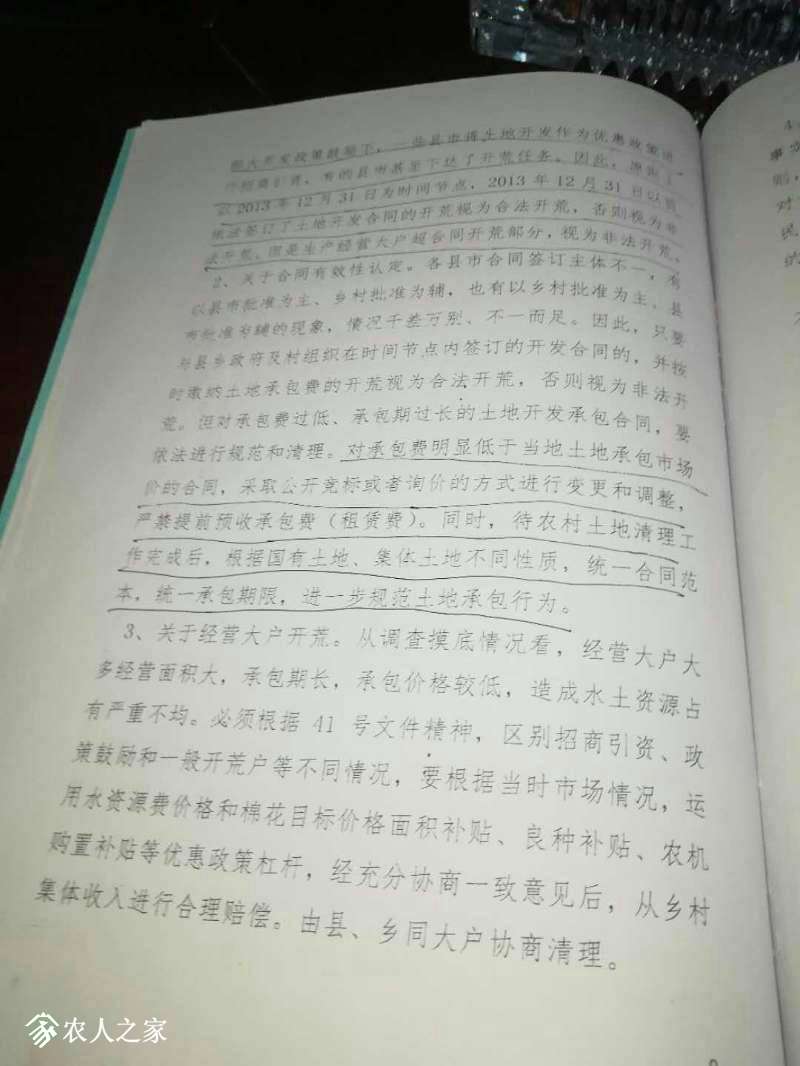 部大开发政策鼓励下，一些县市将土地开发作为优惠政策进
行招商引资、有的县市甚至下达了开荒任务。因此，原则上
以 2013 年 12 月 31 日为时间节点，2013 年 12 月 31 日以前
依法签订了土地开发合同的开荒视为合法开荒，否则视为非
法开荒。但是生产经营大户超合同开荒部分，视为非法开荒。
2、关于合同有效性认定。各县市合同签订主体不一，有
以县市批准为主、乡村批准为辅，也有以乡村批准为主、县
市批准为辅的现象，情况千差万别、不一而足。因此，只要
与县乡政府及村组织在时间节点内签订的开发合同的，并按
时缴纳土地承包费的开荒视为合法开荒，否则视为非法开
荒。但对承包费过低、承包期过长的土地开发承包合同，要
依法进行规范和清理。对承包费明显低于当地土地承包市场
价的合同，采取公开竞标或者询价的方式进行变更和调整，
严禁提前预收承包费（租赁费）。同时，待农村土地清理工
作完成后，根据国有土地、集体土地不同性质，统一合同范
本，统一承包期限，进一步规范土地承包行为。
3、关于经营大户开荒。从调查摸底情况看，经营大户大
多经营面积大，承包期长，承包价格较低，造成水土资源占
有严重不均。必须根据 41 号文件精神，区别招商引资、政
策鼓励和一般开荒户等不同情况，要根据当时市场情况，运
用水资源费价格和棉花目标价格面积补贴、良种补贴、农机
购置补贴等优惠政策杠杆，经充分协商一致意见后，从乡村
集体收入进行合理赔偿。由县、乡同大户协商清理。
事
则，
对
民
的
农人之家